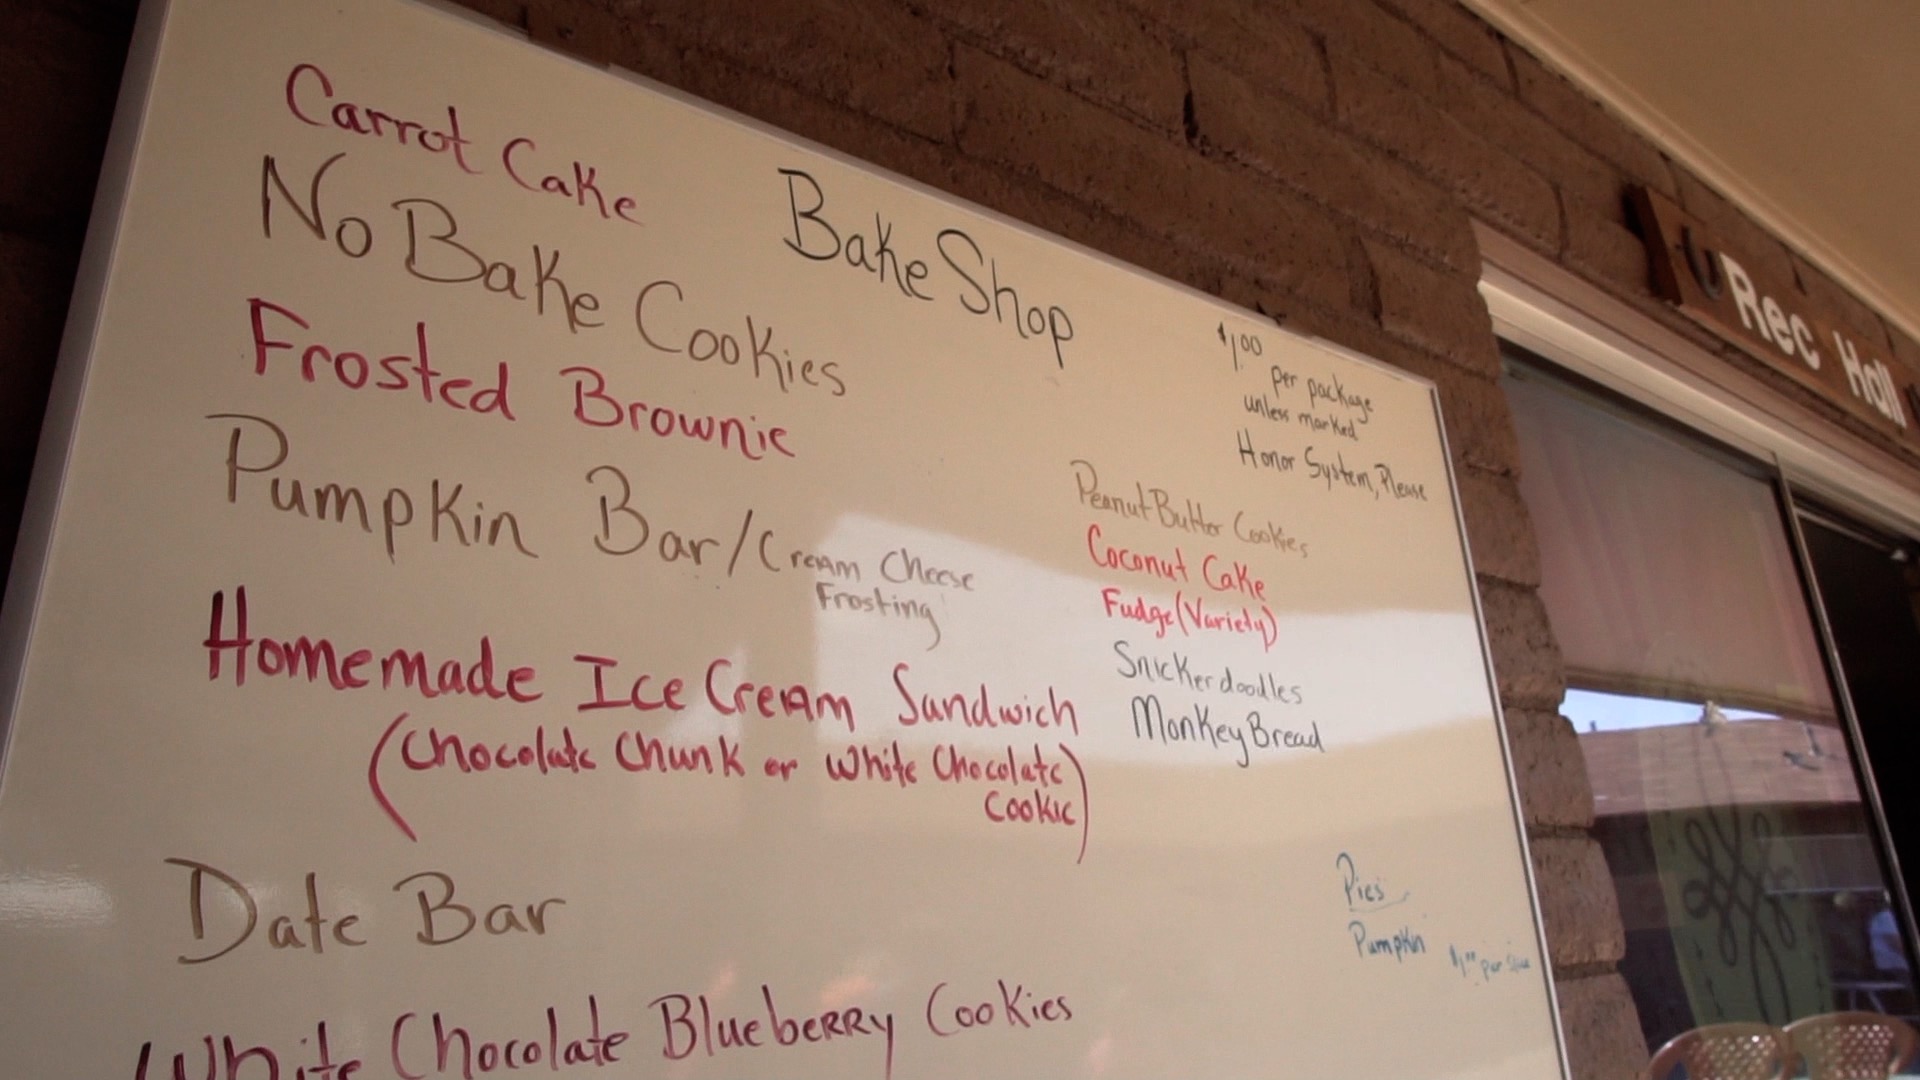 Carrot Cake
No Bake Cookies
Frosted Brownie
Pumpkin Bar/Cream Cheese
Frosting
Homemade Ice Cream Sandwich
(Chocolate Chunk or White Chocolate
Cookie)
Date Bar
White Chocolate Blueberry Cookies
Bake Shop
$1.00
per package
unless marked
Honor System, Please
Peanut Butter Cookies
Coconut Cake
Fudge (Variety)
Snickerdoodles
Monkey Bread
Pies
Pumpkin $1.00 per slice
Rec Hall